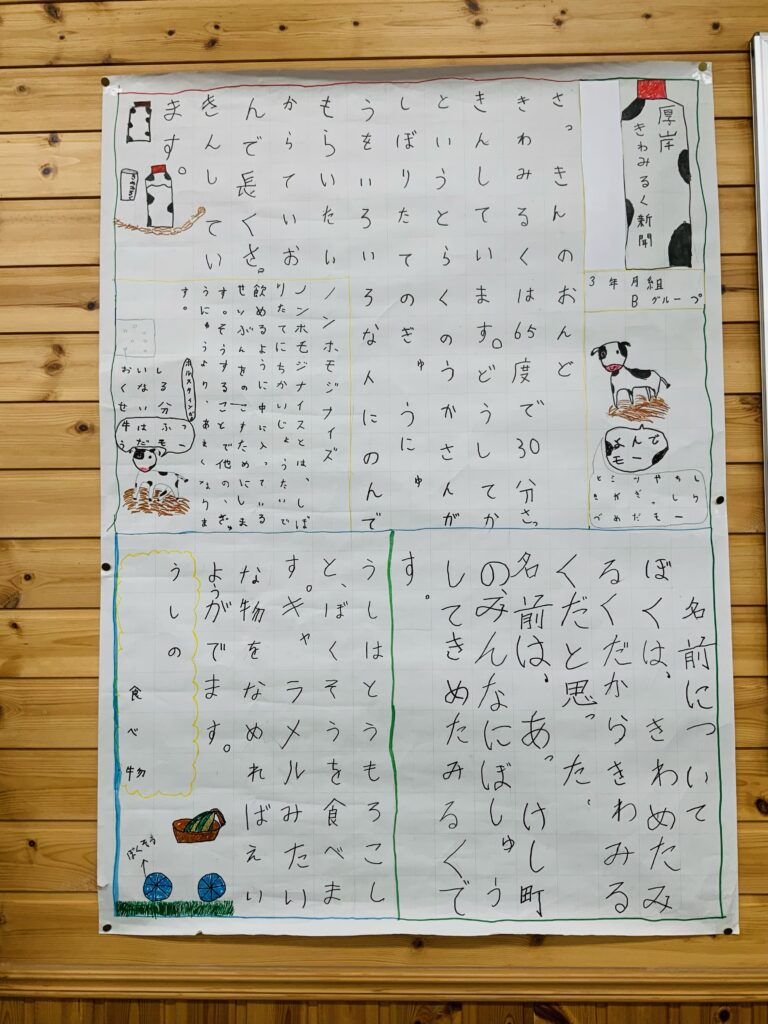 厚岸
きわみるく新聞
3年月組
Bグループ
よんで
モー
さっきんのおんど
きわみるくは65度で30分さっ
きんしています。どうしてか
というとらくのうかさんが
しぼりたてのぎゅうにゅ
うをいろいろな人にのんで
もらいたい
からていお
んで長くさっ
きんしてい
ます。
ノンホモジナイズ
ノンホモジナイズとは、しぼ
りたてにちかいじょうたいで
飲めるように中に入っている
せいぶんをのこすためにしま
す。そうすることで他の、ぎゅ
うにゅうより、あまくなりま
す。
おいし
くなる
せい分
牛はふつ
うだモー
名前について
ぼくは、きわめたみ
るくだからきわみる
くだと思った。
名前は、あっけし町
のみんなにぼしゅう
してきめたみるくで
す。
うしはとうもろこし
と、ぼくそうを食べま
す。キャラメルみたい
な物をなめればえい
ようがでます。
うしの食べ物
ぼくそう